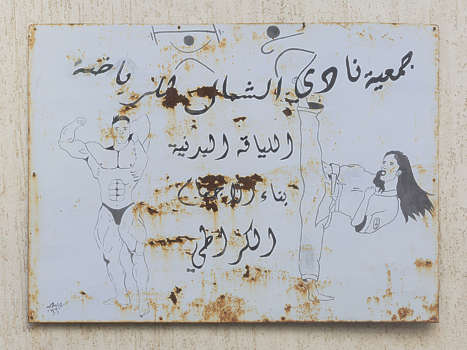 جمعية نادي الشمال للرياضة
اللياقة البدنية
بناء الاجسام
الكراطي